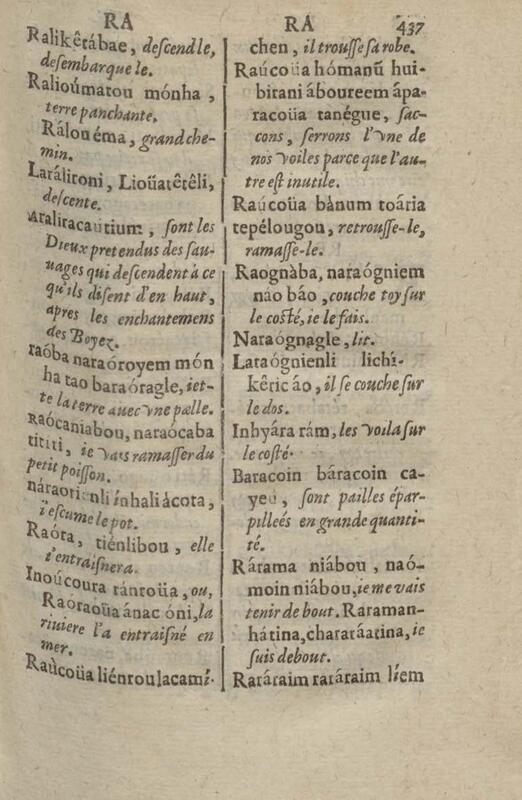 RA
Ralikêtábae, descend le,
desembarque le.
Ralioúmatou mónha,
terre panchante.
Rálou éma, grand che-
min.
Larálironi, Lioüatêtêli,
descente.
Araliracautium, sont les
Dieux pretendus des sau-
uages qui descendent à ce
qu'ils disent d'en haut,
apres les enchantemens
des Boyez.
raóba naraóroyem món
ha tao baraóragle, iet-
te la terre auec vne pœlle.
Raócaniabou, naraócaba
titiri, ie vais ramasser du
petit poisson.
náraorienli ínhali ácota,
i'escume le pot.
Raóta, tiénlibou, elle
t'entraisnera.
Inoúcoura rántoüa, ou,
Raóraoüa ánac óni, la
riuiere l'a entraisné en
mer.
Raùcoüa liénroulacamí-
RA 437
chen, il trousse sa robe.
Raúcoüa hómanũ hui-
birani áboureem ápa-
racoüa tanégue, fac-
cons, serrons l'vne de
nos voiles parce que l'au-
tre est inutile.
Raúcoüa bànum toária
tepélougou, retrousse-le,
ramasse-le.
Raognàba, naraógniem
nao báo, couche toy sur
le costé, ie le fais.
Naraógnagle, lit.
Laraógnienli lichi-
kêric áo, il se couche sur
le dos.
Inhyára rám, les voila sur
le costé.
Baracoin báracoin ca-
yeu, sont pailles épar-
pilleés en grande quanti-
té.
Rárama niábou, naó-
moin niábou, ie me vais
tenir de bout. Raraman-
hátina, chararáatina, ie
suis debout.
Raráraim raráraim líem